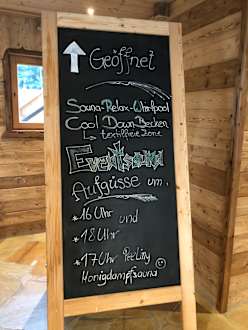 Geöffnet
Sauna-Relax-Whirlpool
Cool Down Becken
↳ textilfreie Zone
Eventsauna
Aufgüsse um:
*16 Uhr und
*18 Uhr
*17 Uhr Peeling
Honigdampfsauna